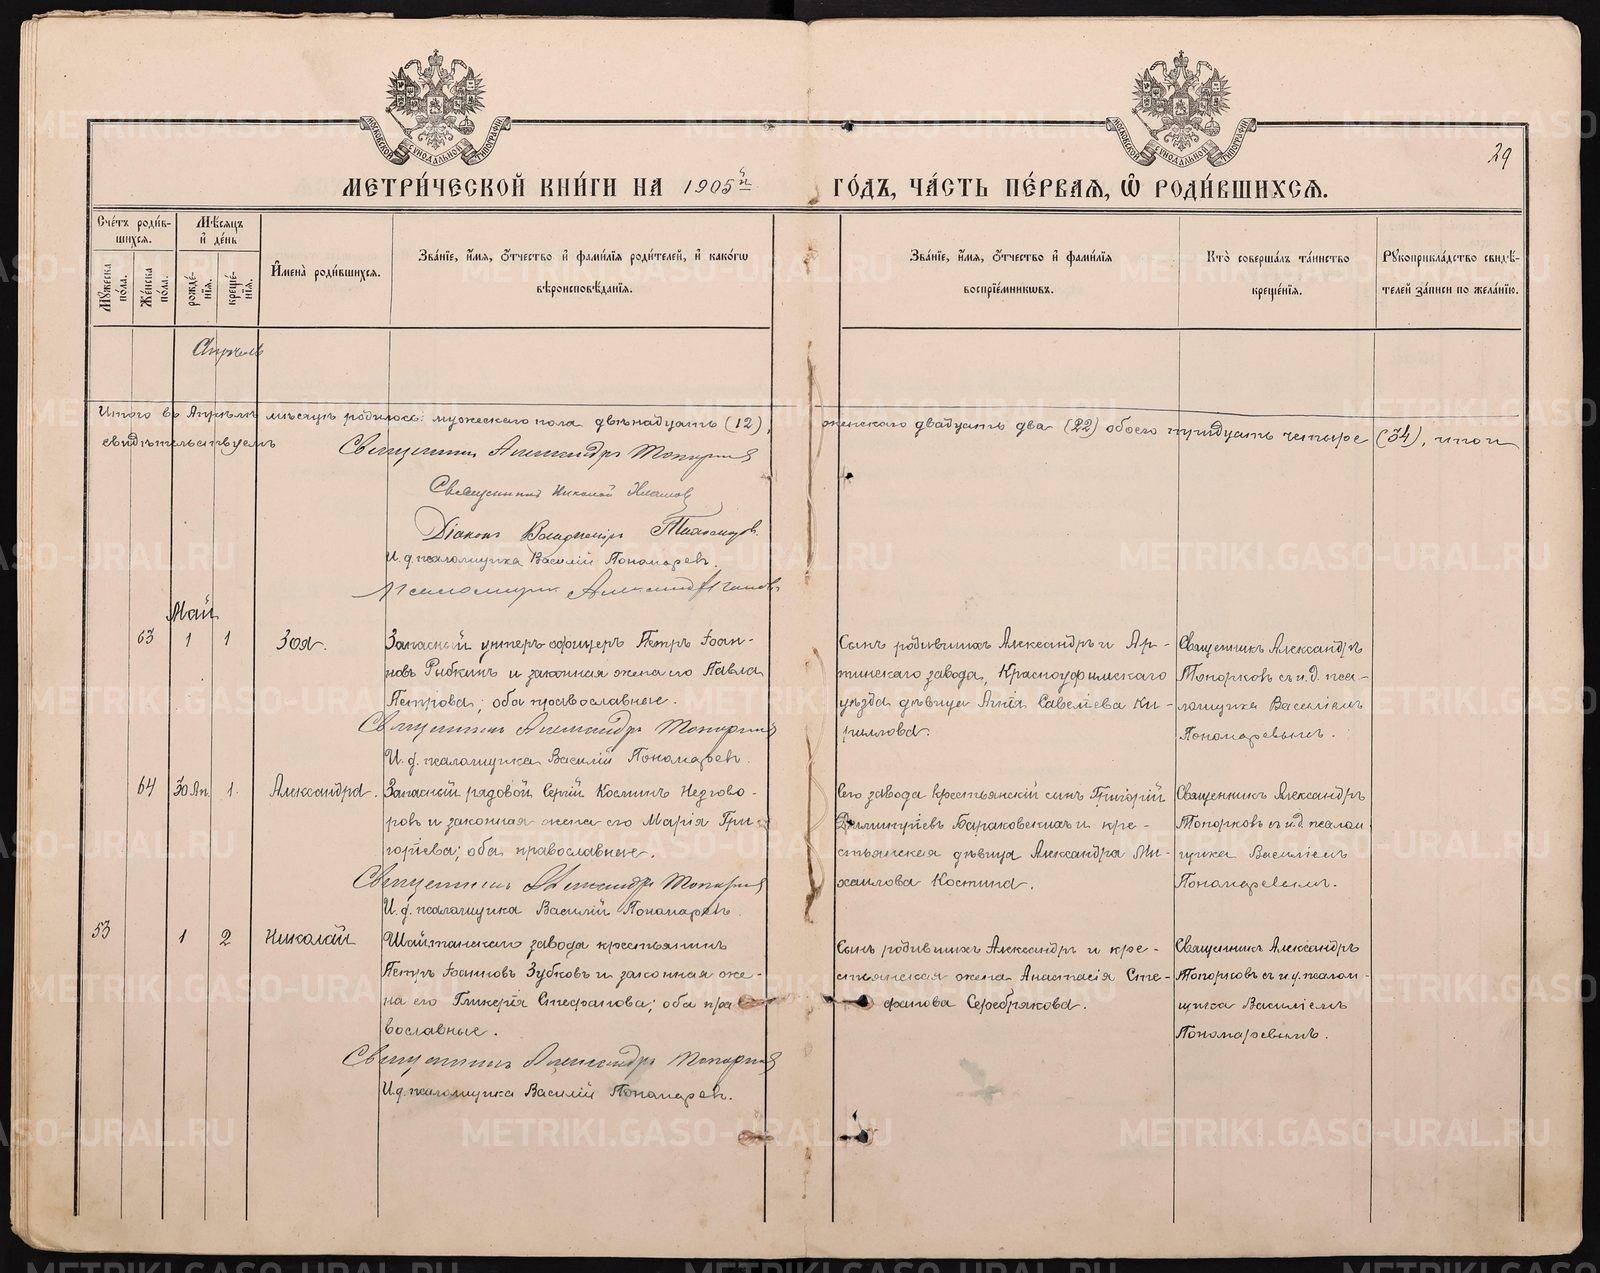 МОСКОВСКОЙ СѴНОДАЛЬНОЙ ТИПОГРАФІИ
МОСКОВСКОЙ СѴНОДАЛЬНОЙ ТИПОГРАФІИ
29
МЕТРИ́ЧЕСКОЙ КНИ́ГИ НА 1905й ГО́ДЪ, ЧА́СТЬ ПЕ́РВАЯ, Ѡ РОДИ́ВШИХСЯ.
Сче́тъ роди́вшихся.
Мѣ́сяцъ и де́нь
Мꙋ́жеска по́ла.
Же́нска по́ла.
рожде́нїя.
креще́нїя.
Имена̀ роди́вшихся.
Зва́нїе, и́мя, о́тчество и фами́лїя роди́телей, и како́гѡ
вѣроисповѣ́данїя.
Зва́нїе, и́мя, о́тчество и фами́лїя
воспрїе́мникѡвъ.
Кто̀ соверша́лъ та́инство
креще́нїя.
Рꙋкоприкла́дство свидѣ́-
телей за́писи по жела́нїю.
Апрѣль
Итого въ Апрѣлѣ мѣсяцѣ родилось: мужескаго пола двѣнадцать (12), женскаго двадцать два (22) обоего тридцать четыре (34), что и
свидѣтельствуемъ
Священникъ Александръ Топорковъ
Священникъ Николай
Діаконъ Владимиръ
И. д. псаломщика Василій Пономаревъ.
Псаломщикъ Александръ
Май
63 1 1 Зоя.
Запасный унтеръ-офицеръ Петръ Іоан-
новъ Рыбкинъ и законная жена его Павла
Петрова; оба православные.
Священникъ Александръ Топорковъ
И. д. псаломщика Василій Пономаревъ.
Сынъ родившихъ Александръ и Ар-
тинскаго завода, Красноуфимскаго
уѣзда дѣвица Агнія Савеліева Ки-
риллова.
Священникъ Александръ
Топорковъ съ и. д. пса-
ломщика Василіемъ
Пономаревымъ.
64 30 Ап. 1. Александра.
Запасный рядовой Сергій Косминъ Незгово-
ровъ и законная жена его Марія Гри-
горіева; оба православные.
Священникъ Александръ Топорковъ
И. д. псаломщика Василій Пономаревъ.
Сего завода крестьянскій сынъ Григорій
Димитріевъ Бараковскихъ и кре-
стьянская дѣвица Александра Ми-
хаилова Костина.
Священникъ Александръ
Топорковъ съ и. д. псалом
щика Василіемъ
Пономаревымъ.
53 1 2 Николай
Шайтанскаго завода крестьянинъ
Петръ Іоанновъ Зубковъ и законная же-
на его Гликерія Стефанова; оба пра
вославные.
Священникъ Александръ Топорковъ
И. д. псаломщика Василій Пономаревъ.
Сынъ родившихъ Александръ и кре-
стьянская жена Анастасія Сте-
фанова Серебрякова.
Священникъ Александръ
Топорковъ съ и. д. псалом-
щика Василіемъ
Пономаревымъ.
METRIKI.GASO-URAL.RU